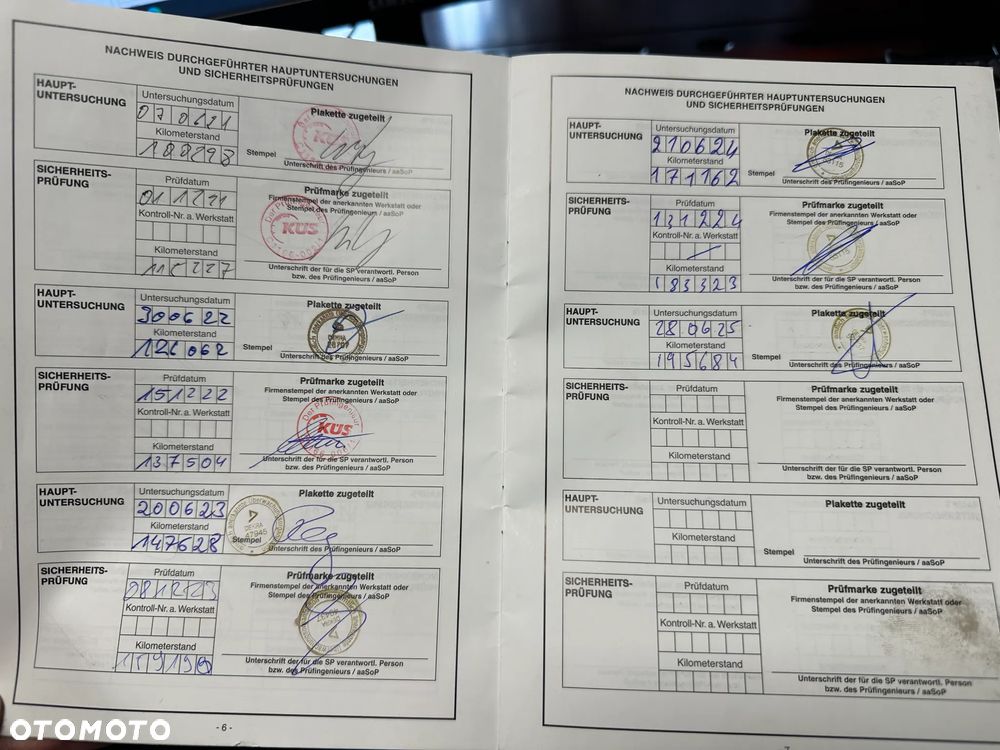 NACHWEIS DURCHGEFÜHRTER HAUPTUNTERSUCHUNGEN
UND SICHERHEITSPRÜFUNGEN
HAUPT-
UNTERSUCHUNG
Untersuchungsdatum
070621
Kilometerstand
Plakette zugeteilt
KÜS
Stempel
Unterschrift des Prüfingenieurs / aaSoP
SICHERHEITS-
PRÜFUNG
Prüfdatum
011221
Kontroll-Nr. a. Werkstatt
Kilometerstand
115227
Prüfmarke zugeteilt
Firmenstempel der anerkannten Werkstatt oder
Stempel des Prüfingenieurs / aaSoP
Der Prüfingenieur
KÜS
Unterschrift der für die SP verantwortl. Person
bzw. des Prüfingenieurs / aaSoP
HAUPT-
UNTERSUCHUNG
Untersuchungsdatum
300622
Kilometerstand
126062
Plakette zugeteilt
DEKRA
Stempel
Unterschrift des Prüfingenieurs / aaSoP
SICHERHEITS-
PRÜFUNG
Prüfdatum
151222
Kontroll-Nr. a. Werkstatt
Kilometerstand
137504
Prüfmarke zugeteilt
Firmenstempel der anerkannten Werkstatt oder
Stempel des Prüfingenieurs / aaSoP
Der Prüfingenieur
KÜS
Unterschrift der für die SP verantwortl. Person
bzw. des Prüfingenieurs / aaSoP
HAUPT-
UNTERSUCHUNG
Untersuchungsdatum
200623
Kilometerstand
147628
Plakette zugeteilt
DEKRA
47945
Stempel
Unterschrift des Prüfingenieurs / aaSoP
SICHERHEITS-
PRÜFUNG
Prüfdatum
081223
Kontroll-Nr. a. Werkstatt
Kilometerstand
Prüfmarke zugeteilt
Firmenstempel der anerkannten Werkstatt oder
Stempel des Prüfingenieurs / aaSoP
DEKRA
Unterschrift der für die SP verantwortl. Person
bzw. des Prüfingenieurs / aaSoP
- 6 -
NACHWEIS DURCHGEFÜHRTER HAUPTUNTERSUCHUNGEN
UND SICHERHEITSPRÜFUNGEN
HAUPT-
UNTERSUCHUNG
Untersuchungsdatum
210624
Kilometerstand
171162
Plakette zugeteilt
Stempel
Unterschrift des Prüfingenieurs / aaSoP
SICHERHEITS-
PRÜFUNG
Prüfdatum
131224
Kontroll-Nr. a. Werkstatt
Kilometerstand
183323
Prüfmarke zugeteilt
Firmenstempel der anerkannten Werkstatt oder
Stempel des Prüfingenieurs / aaSoP
Unterschrift der für die SP verantwortl. Person
bzw. des Prüfingenieurs / aaSoP
HAUPT-
UNTERSUCHUNG
Untersuchungsdatum
280625
Kilometerstand
195684
Plakette zugeteilt
Stempel
Unterschrift des Prüfingenieurs / aaSoP
SICHERHEITS-
PRÜFUNG
Prüfdatum
Kontroll-Nr. a. Werkstatt
Kilometerstand
Prüfmarke zugeteilt
Firmenstempel der anerkannten Werkstatt oder
Stempel des Prüfingenieurs / aaSoP
Unterschrift der für die SP verantwortl. Person
bzw. des Prüfingenieurs / aaSoP
HAUPT-
UNTERSUCHUNG
Untersuchungsdatum
Kilometerstand
Plakette zugeteilt
Stempel
Unterschrift des Prüfingenieurs / aaSoP
SICHERHEITS-
PRÜFUNG
Prüfdatum
Kontroll-Nr. a. Werkstatt
Kilometerstand
Prüfmarke zugeteilt
Firmenstempel der anerkannten Werkstatt oder
Stempel des Prüfingenieurs / aaSoP
Unterschrift der für die SP verantwortl. Person
bzw. des Prüfingenieurs / aaSoP
OTOMOTO